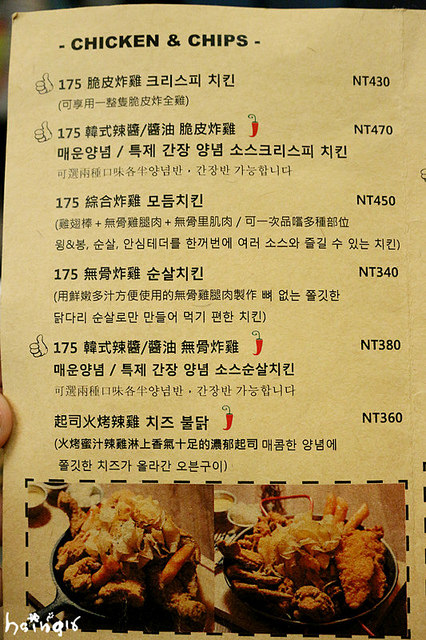 - CHICKEN & CHIPS -
175 脆皮炸雞 크리스피 치킨 NT430
(可享用一整隻脆皮炸全雞)
175 韓式辣醬/醬油 脆皮炸雞 NT470
매운양념 / 특제 간장 양념 소스크리스피 치킨
可選兩種口味各半양념반・간장반 가능합니다
175 綜合炸雞 모듬치킨 NT450
(雞翅棒+無骨雞腿肉+無骨里肌肉 / 可一次品嚐多種部位
윙&봉, 순살, 안심테더를 한꺼번에 여러 소스와 즐길 수 있는 치킨)
175 無骨炸雞 순살치킨 NT340
(用鮮嫩多汁方便使用的無骨雞腿肉製作 뼈 없는 쫄깃한
닭다리 순살로만 만들어 먹기 편한 치킨)
175 韓式辣醬/醬油 無骨炸雞 NT380
매운양념 / 특제 간장 양념 소스순살치킨
可選兩種口味各半양념반・간장반 가능합니다
起司火烤辣雞 치즈 불닭 NT360
(火烤蜜汁辣雞淋上香氣十足的濃郁起司 매콤한 양념에
쫄깃한 치즈가 올라간 오븐구이)